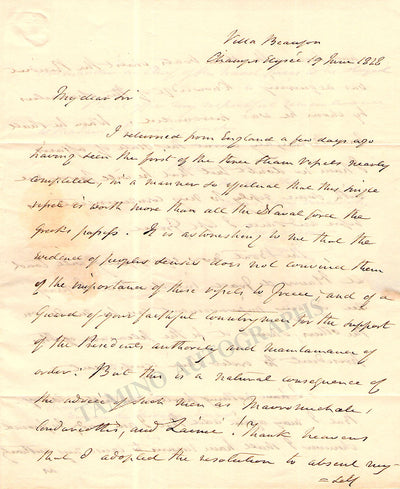 Villa Beaujon
Champs Elysée 19 June 1828
My dear Sir
I returned from England a few days ago
having seen the first of the three steam vessels nearly
completed, in a manner so effectual that this single
vessel is worth more than all the Naval force the
Greeks possess. It is astonishing to me that the
evidence of peoples senses does not convince them
of the importance of these vessels to Greece, and of a
Guard of your faithful countrymen for the support
of the Presidents authority and maintainance of
order: But this is a natural consequence of
the advice of such men as Mavromichale,
Condariottis, and Zaimi! Thank heavens
that I adopted the resolution to absent my=
=self
TAMINO AUTOGRAPHS